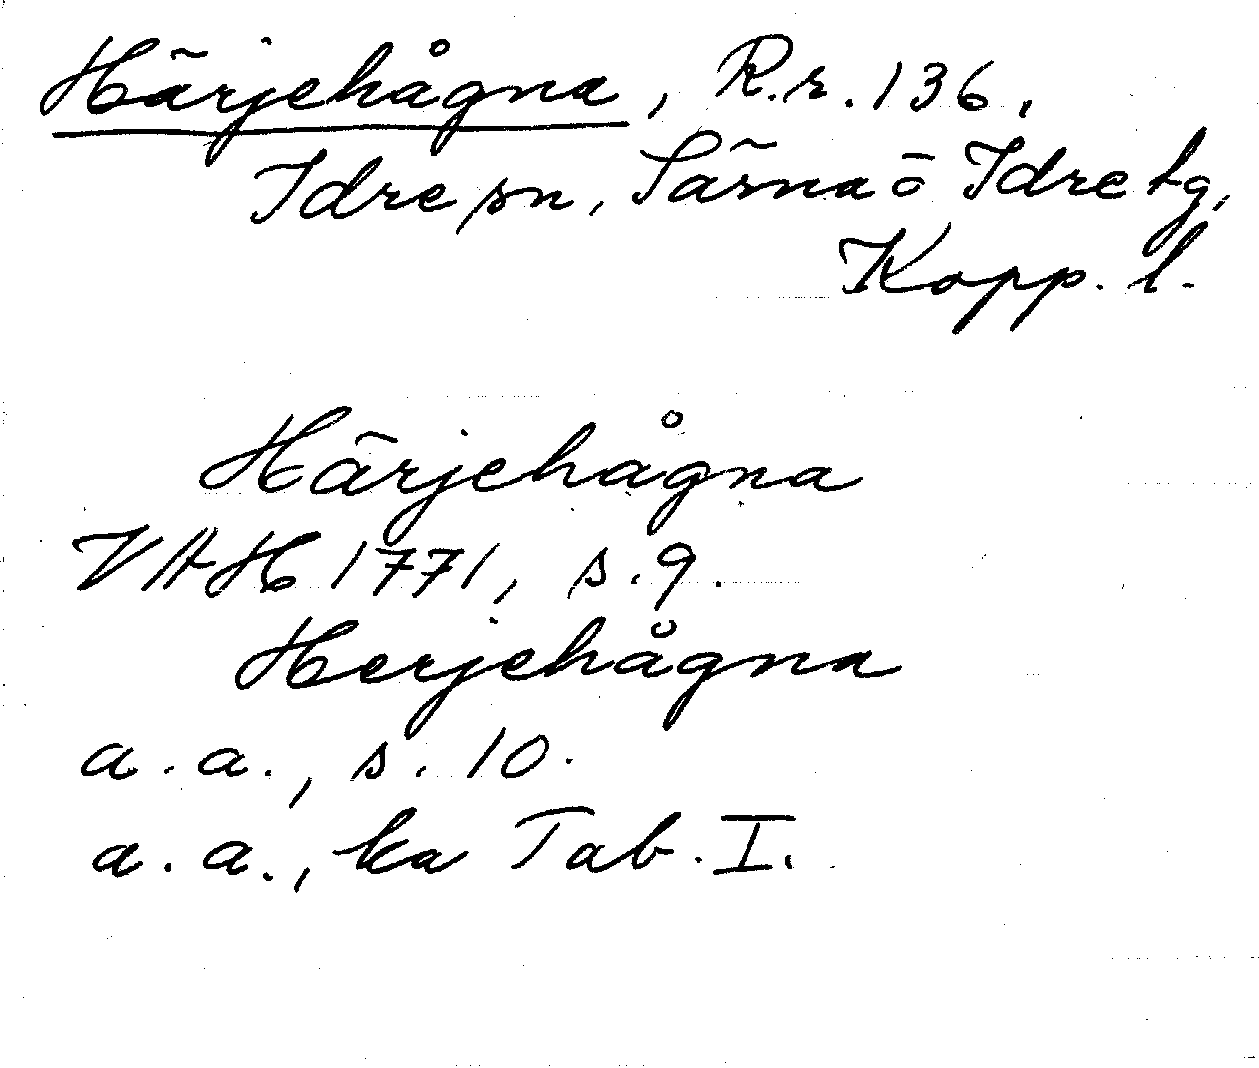 Härjehågna, R.r. 136,
Idre sn, Särna ō Idre tg,
Kopp. l.
Härjehågna
VAH 1771, s. 9.
Herjehågna
a. a., s. 10.
a. a., ka Tab. I.